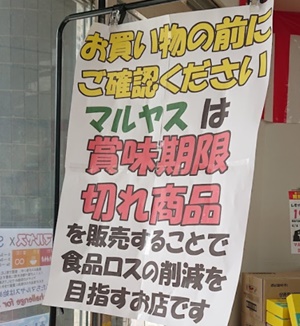 お買い物の前に
ご確認ください
マルヤスは
賞味期限
切れ商品
を販売することで
食品ロスの削減を
目指すお店です